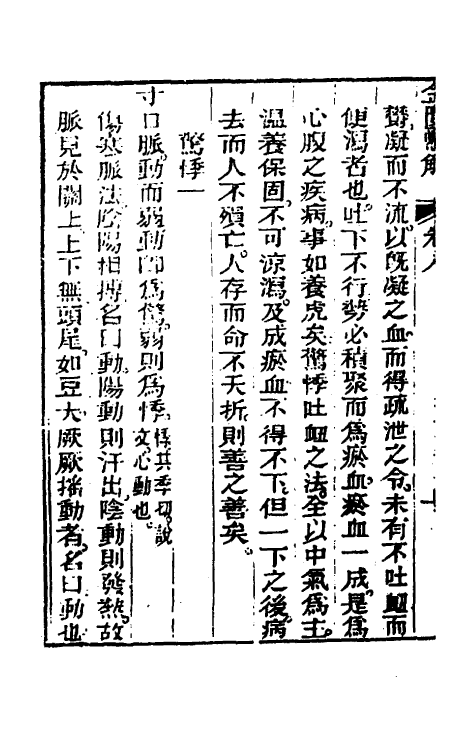 鬱凝而不流以旣凝之血而得疏泄之令未有不吐衄而
便瀉者也吐下不行勢必積聚而爲瘀血瘀血一成是爲
心腹之疾病事如養虎矣驚悸吐衄之法全以中氣爲主
溫養保固不可凉瀉及成瘀血不得不下但一下之後病
去而人不殞亡人存而命不夭折則善之善矣
驚悸一
寸口脈動而弱動卽爲驚弱則爲悸悸其季切說文心動也
傷寒脈法陰陽相搏名曰動陽動則汗出陰動則發熱故
脈見於關上上下無頭尾如豆大厥厥搖動者名曰動也